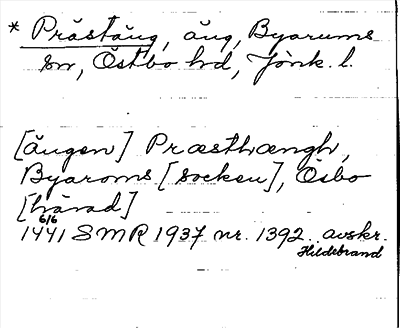 * Prästäng, äng, Byarums
sn, Östbo hd, Jönk. l.
[ängen] Præsthængh,
Byaroms [socken], Østbo
[härad]
6/6
1441 SMR 1937 nr. 1392. avskr.
Hildebrand